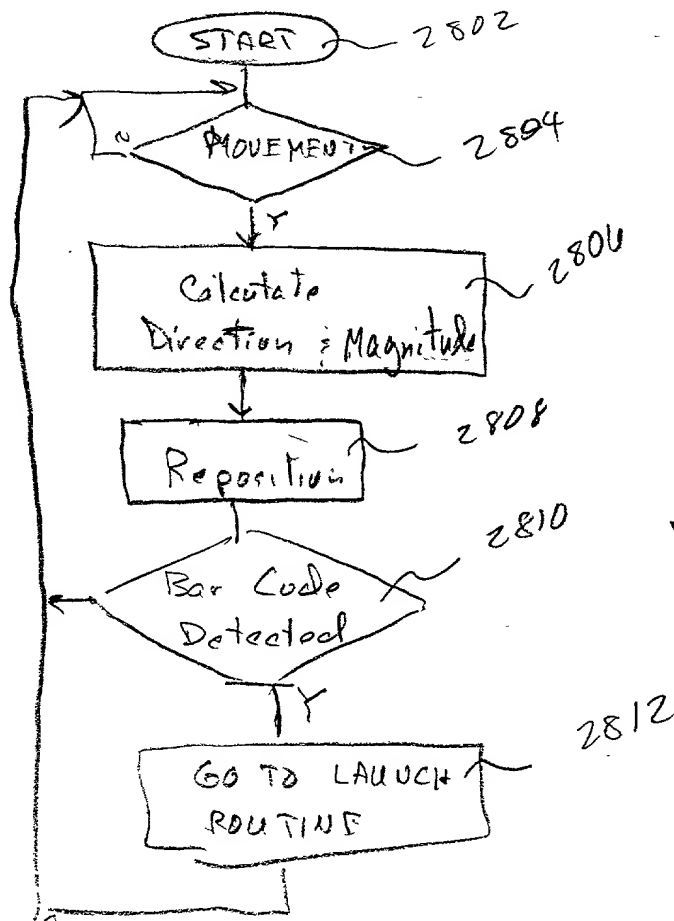 START 2802
MOVEMENT 2804
N
Y
Calculate 2806
Direction & Magnitude
Reposition 2808
2810
Bar Code
Detected
Y
2812
GO TO LAUNCH
ROUTINE